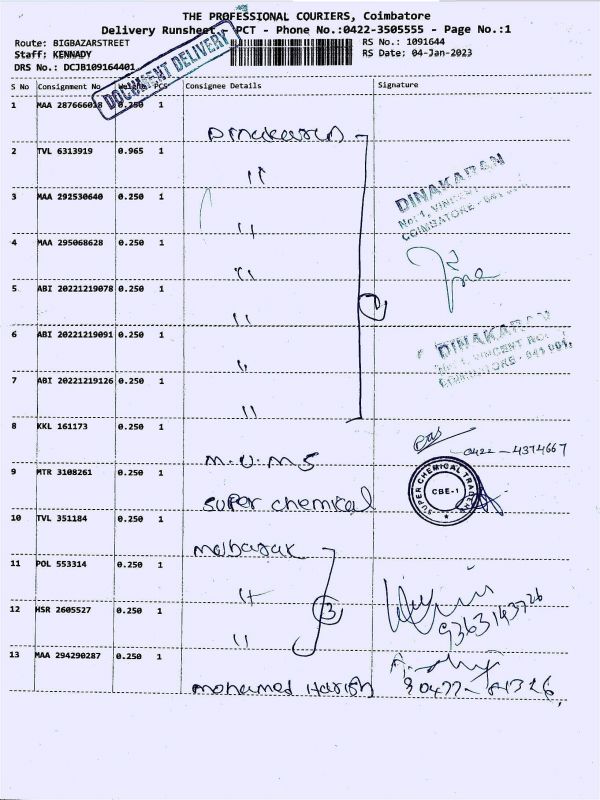 THE PROFESSIONAL COURIERS, Coimbatore
Delivery Runsheet PCT - Phone No.:0422-3505555 - Page No.:1
DOCUMENT DELIVERY
Route: BIGBAZARSTREET
RS No.: 1091644
Staff: KENNADY
RS Date: 04-Jan-2023
DRS No.: DCJB109164401
S No Consignment No. Weight PCS Consignee Details Signature
1 MAA 287666028 0.250 1
2 TVL 6313919 0.965 1
"
3 MAA 292530640 0.250 1
"
DINAKARAN
No: 1, VINCENT
COIMBATORE - 641
4 MAA 295068628 0.250 1
"
5 ABI 20221219078 0.250 1
"
7
6 ABI 20221219091 0.250 1
"
DINAKARAN
No: 1, VINCENT RO
COIMBATORE - 641 001.
7 ABI 20221219126 0.250 1
"
8 KKL 161173 0.250 1
M.U.M.S
0422-4374667
9 MTR 3108261 0.250 1
super chemical
SUPER CHEMICAL TRADERS
CBE-1
10 TVL 351184 0.250 1
malbarak
11 POL 553314 0.250 1
"
3
12 HSR 2605527 0.250 1
"
9363143726
13 MAA 294290287 0.250 1
mohamed Harish